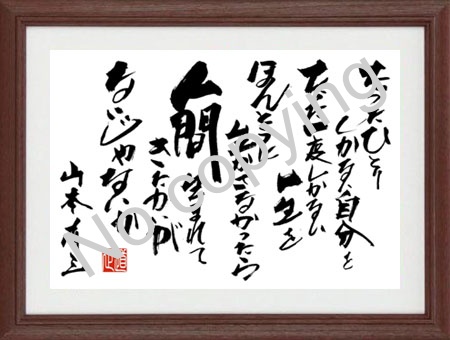 たったひとり
しかない自分を
たった一度しかない
一生を
ほんとうに
生かさなかったら
人間生まれて
きたかいが
ないじゃないか
山本有三
No copying